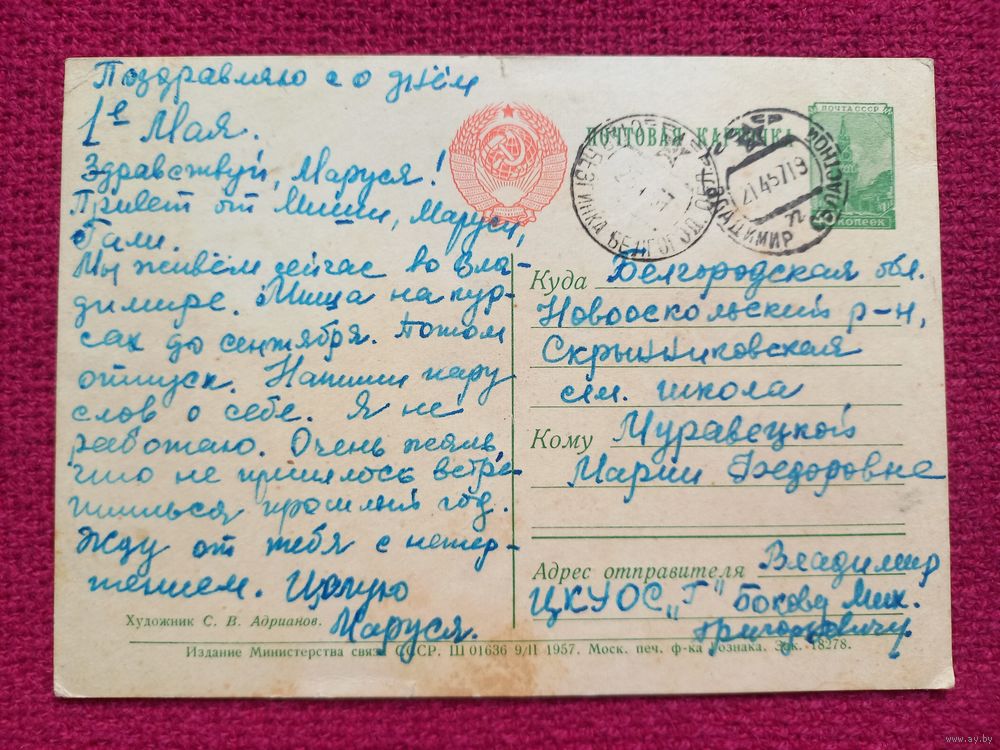 Поздравляю с о днём
1е Мая.
Здравствуй, Маруся!
Привет от Миши, Маруси,
Гали.
Мы живём сейчас во Вла-
димире. Миша на кур-
сах до сентября. Потом
отпуск. Напиши пару
слов о себе. Я не
работаю. Очень жаль,
что не пришлось встре-
титься прошлый год.
Жду от тебя с нетер-
пением. Целую
Маруся.
Художник С. В. Адрианов.
ПОЧТОВАЯ КАРТОЧКА
ПОЧТА СССР
КОПЕЕК
ВЛАДИМИР
2145719
БЕЛГОРОД
Куда Белгородская обл.
Новооскольский р-н,
Скрынниковская
сем. школа
Кому Муравецкой
Марии Федоровне
Адрес отправителя Владимир
ЦКУОС „Г" Бокову Мих.
Григорьевичу.
Издание Министерства связи СССР. Ш 01636 9/II 1957. Моск. печ. ф-ка Гознака. Зак. 18278.
www.ay.by